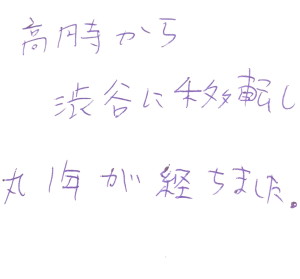 高円寺から
渋谷に移転し
丸1年が経ちました。